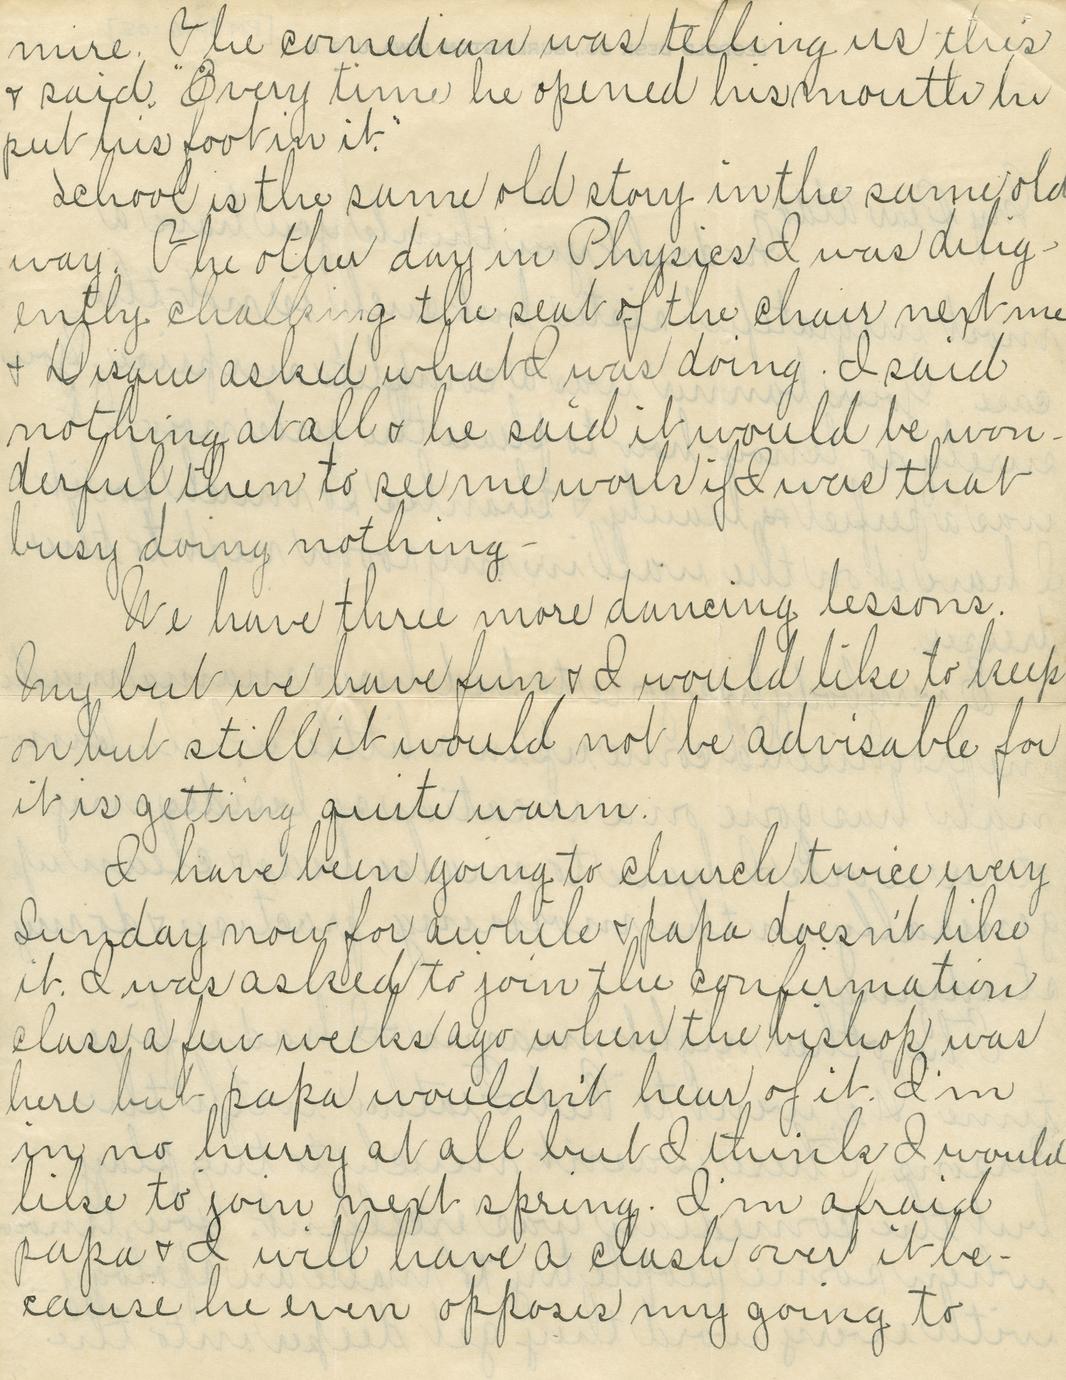 mire. The comedian was telling us this
& said, "Every time he opened his mouth he
put his foot in it."
School is the same old story in the same old
way. The other day in Physics I was dilig-
ently chalking the seat of the chair next me
& Disque asked what I was doing. I said
nothing at all & he said it would be won-
derful then to see me work if I was that
busy doing nothing -
We have three more dancing lessons.
My but we have fun & I would like to keep
on but still it would not be advisable for
it is getting quite warm.
I have been going to church twice every
Sunday now for awhile & papa doesn't like
it. I was asked to join the confirmation
class a few weeks ago when the bishop was
here but papa wouldn't hear of it. I'm
in no hurry at all but I think I would
like to join next spring. I'm afraid
papa & I will have a clash over it be-
cause he even opposes my going to